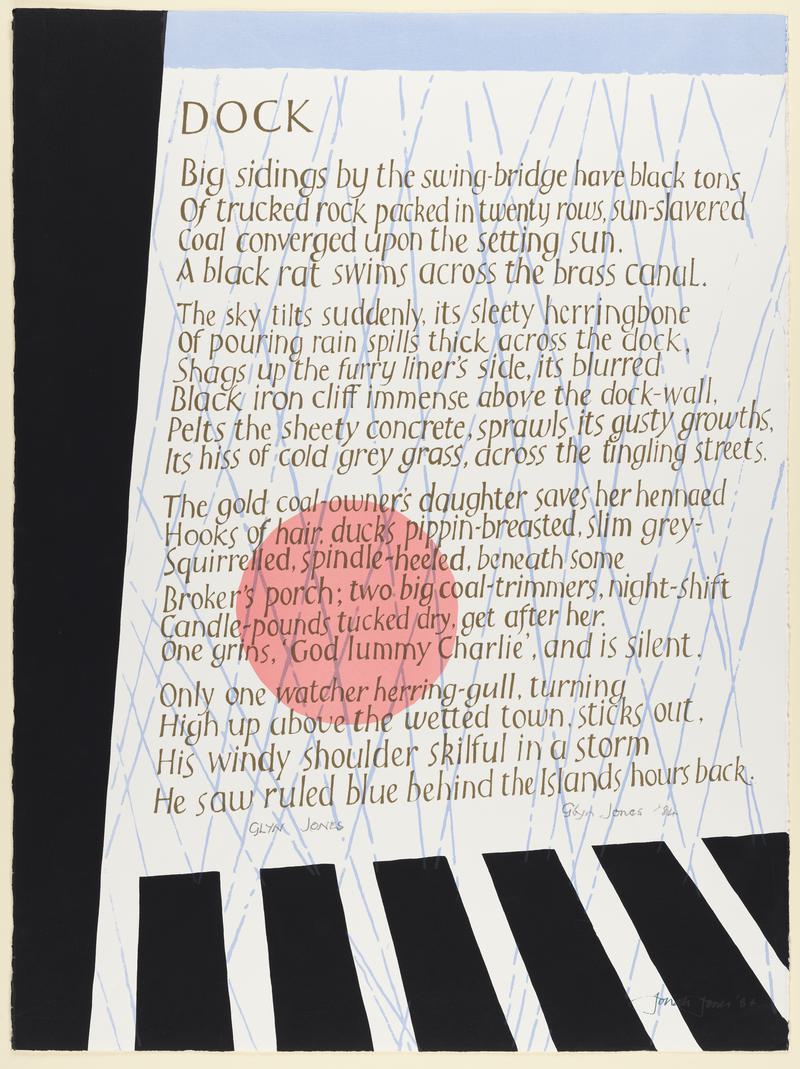 DOCK
Big sidings by the swing-bridge have black tons
Of trucked rock packed in twenty rows, sun-slavered
Coal converged upon the setting sun.
A black rat swims across the brass canal.
The sky tilts suddenly, its sleety herringbone
Of pouring rain spills thick across the dock,
Shags up the furry liner's side, its blurred
Black iron cliff immense above the dock-wall,
Pelts the sheety concrete, sprawls its gusty growths,
Its hiss of cold grey grass, across the tingling streets.
The gold coal-owner's daughter saves her hennaed
Hooks of hair, ducks pippin-breasted, slim grey-
Squirrelled, spindle-heeled, beneath some
Broker's porch; two big coal-trimmers, night-shift
Candle-pounds tucked dry, get after her.
One grins, 'God lummy Charlie', and is silent.
Only one watcher herring-gull, turning
High up above the wetted town, sticks out,
His windy shoulder skilful in a storm
He saw ruled blue behind the Islands hours back.
GLYN JONES
Glyn Jones '84
Jonah Jones '84